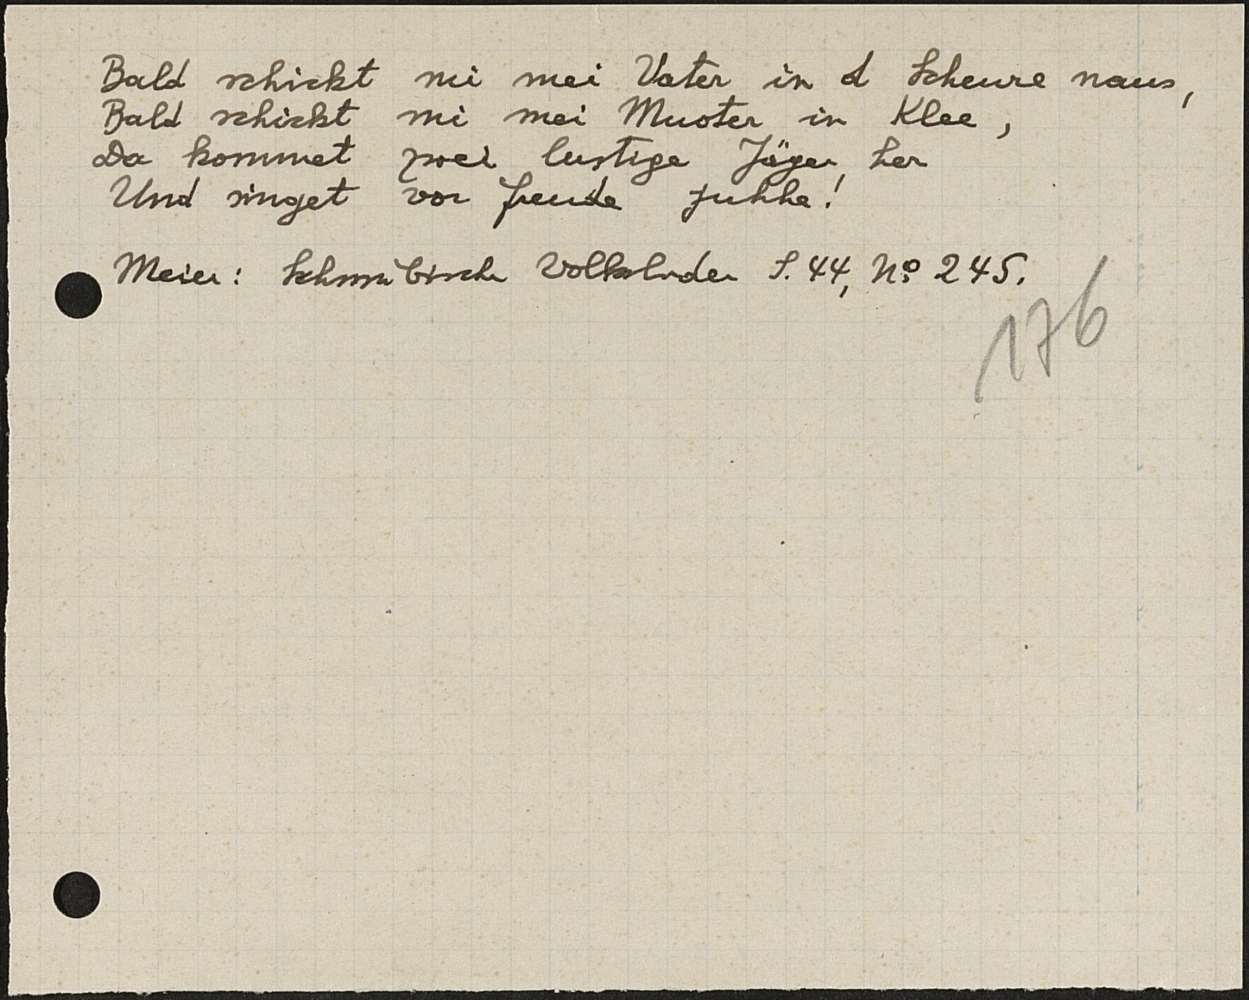 Bald schickt mi mei Vater in d Scheure naus,
Bald schickt mi mei Muoter in Klee,
Da kommet zwei lustige Jäger her
Und singet vor Freude juhhe!
Meier: Schwäbische Volkslieder S. 44, No 245.
176